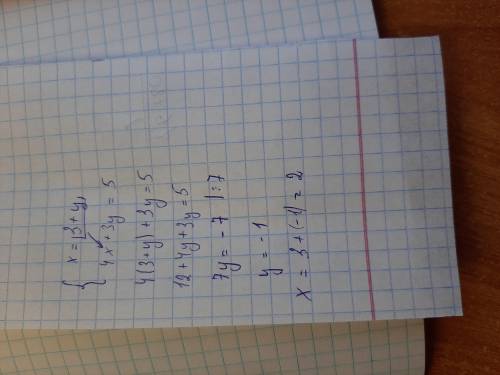 { x = 3 + y,
4x + 3y = 5
4(3+y) + 3y = 5
12 + 4y + 3y = 5
7y = -7 |:7
y = -1
x = 3 + (-1) = 2